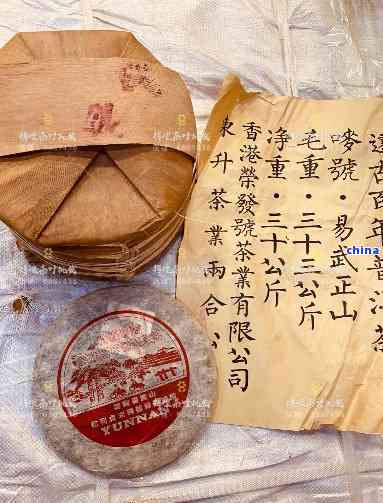 遠古百年普洱茶
嘜號・易武正山
毛重・三十三公斤
净重・三十公斤
香港榮發號茶業有限公司
東升茶業兩合公
china
YUNNAN